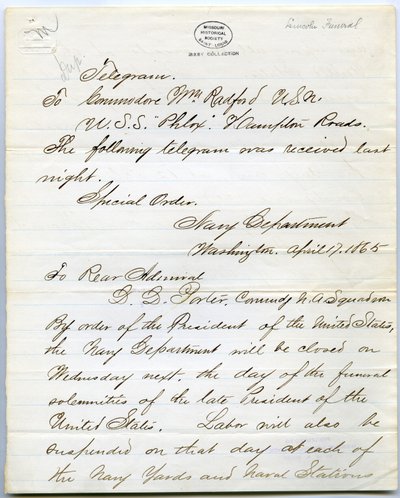 Lincoln Funeral
MISSOURI
HISTORICAL
SOCIETY
SAINT LOUIS
BIXBY COLLECTION
Dup.
Telegram.
To Commodore Wm Radford U.S.N.
U.S.S. "Phlox". Hampton Roads.
The following telegram was received last
night.
Special Order.
Navy Department
Washington. April 17. 1865
To Rear Admiral
D. D. Porter. Commdg N. A Squadron
By order of the President of the United States,
the Navy Department will be closed on
Wednesday next. the day of the funeral
solemnities of the late President of the
United States. Labor will also be
suspended on that day at each of
the Navy Yards and Naval Stations